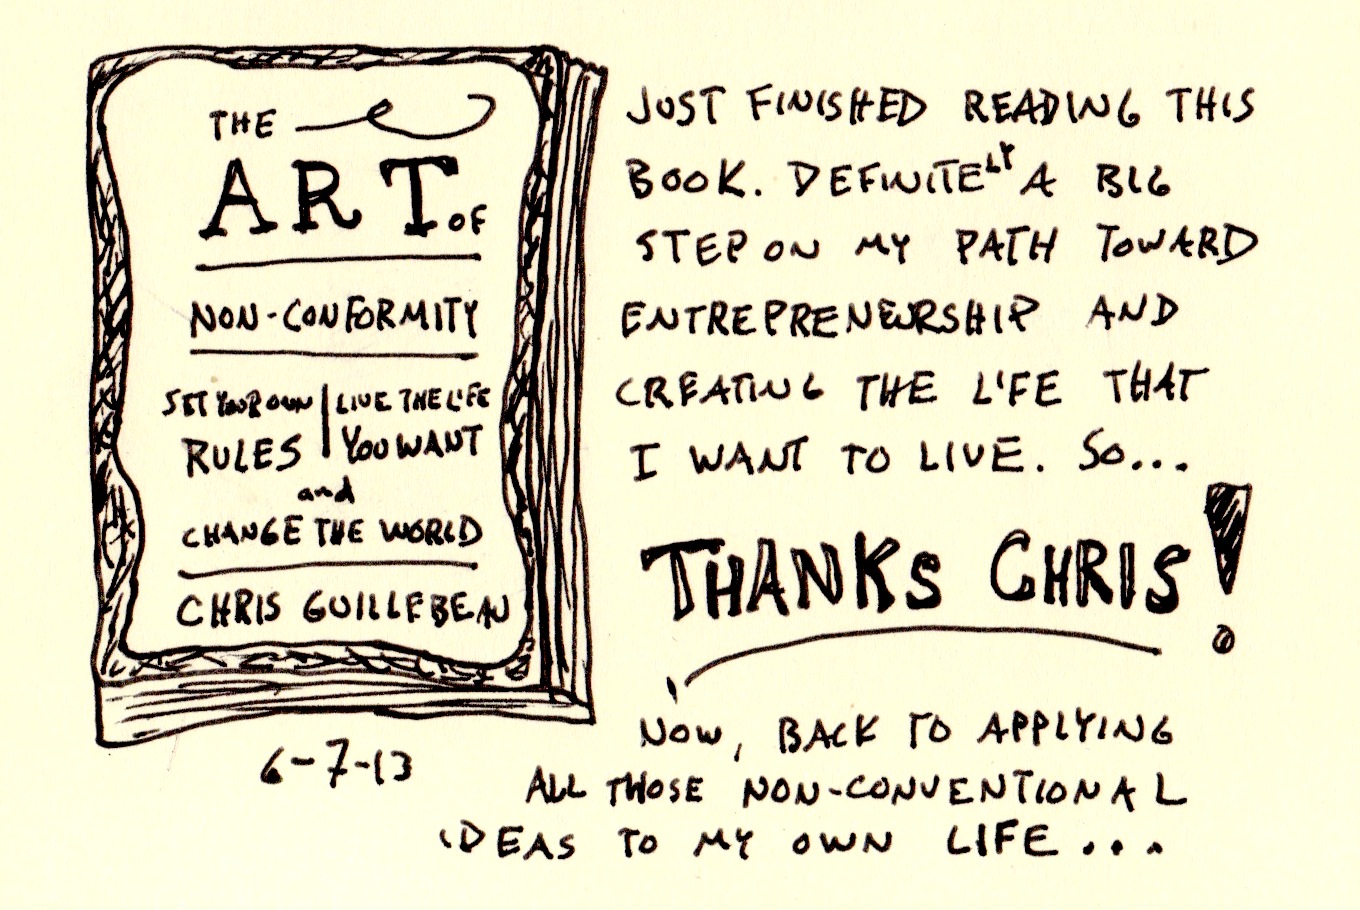 THE
ART OF
NON-CONFORMITY
SET YOUR OWN | LIVE THE LIFE
RULES | YOU WANT
and
CHANGE THE WORLD
CHRIS GUILLEBEAU
6-7-13
JUST FINISHED READING THIS
BOOK. DEFINITELY A BIG
STEP ON MY PATH TOWARD
ENTREPRENEURSHIP AND
CREATING THE LIFE THAT
I WANT TO LIVE. SO...
THANKS CHRIS!
NOW, BACK TO APPLYING
ALL THOSE NON-CONVENTIONAL
IDEAS TO MY OWN LIFE...